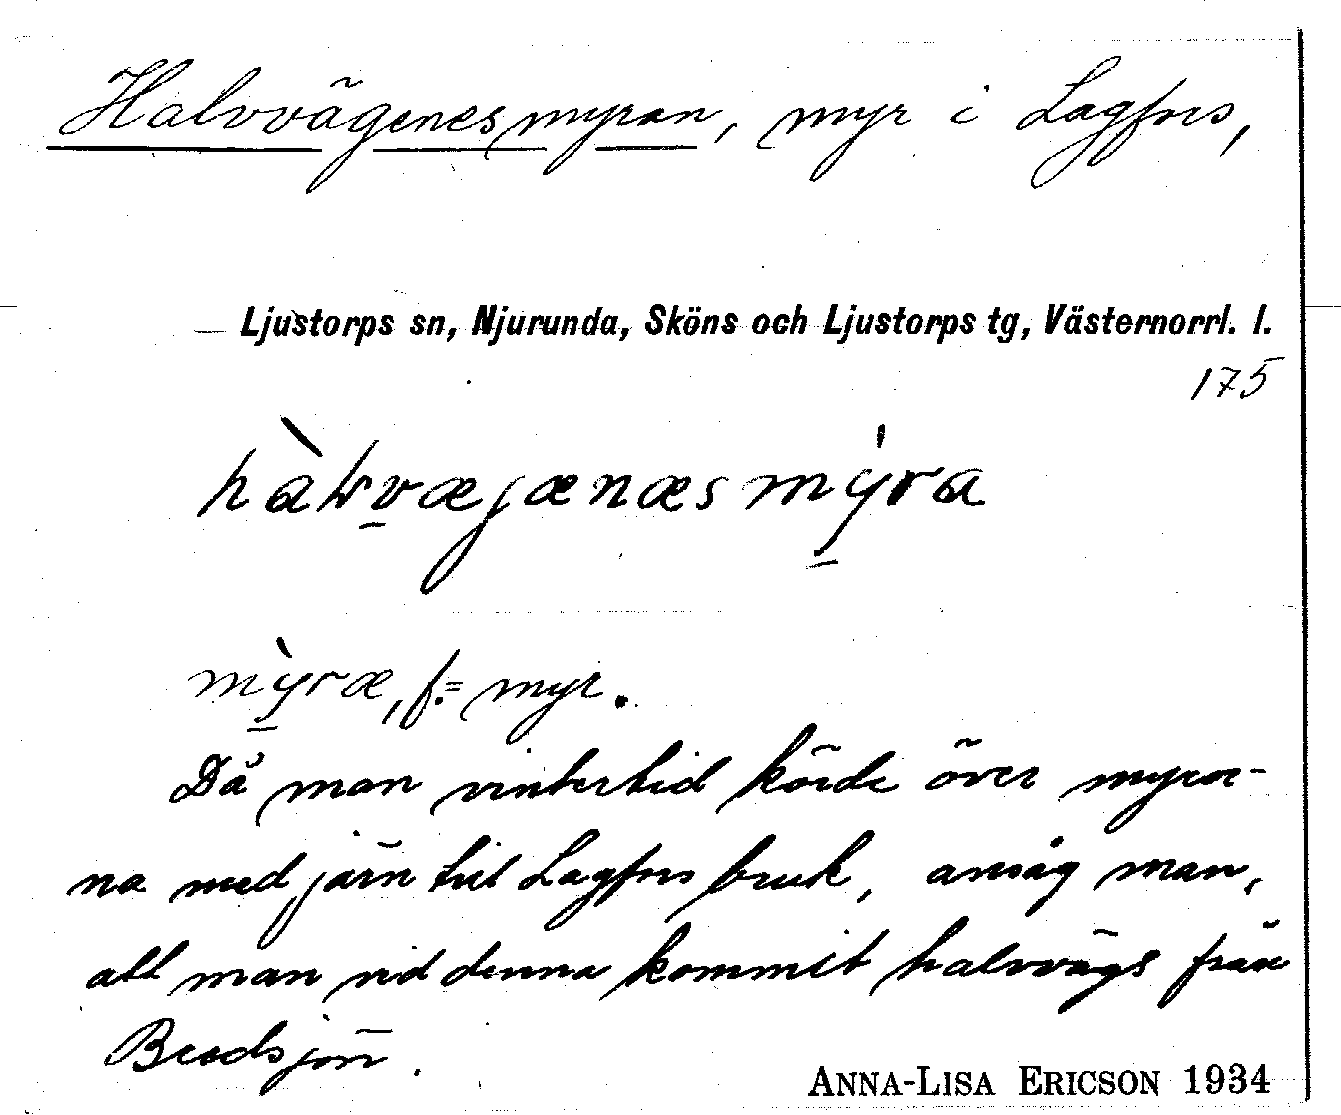 Halvvägenesmyran, myr i Lagfors,
Ljustorps sn, Njurunda, Sköns och Ljustorps tg, Västernorrl. l.
175
hàlvvæjænæsmýra
mỳræ, f. = myr.
Då man vintertid körde över myror-
na med järn till Lagfors bruk, ansåg man,
att man vid denna kommit halvvägs från
Bredsjön.
ANNA-LISA ERICSON 1934